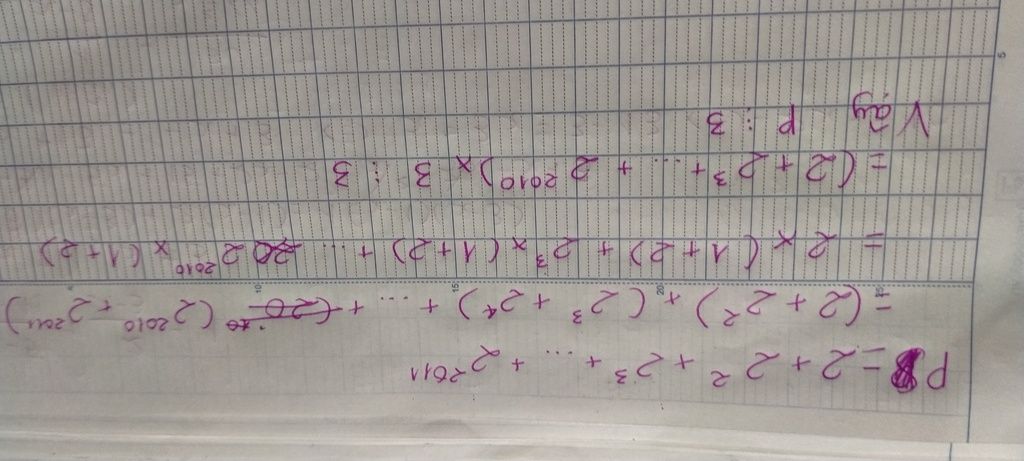 P = 2 + 2² + 2³ + ... + 2²⁰¹¹
= (2 + 2²) + (2³ + 2⁴) + ... + (2²⁰¹⁰ + 2²⁰¹¹)
= 2 × (1 + 2) + 2³ × (1 + 2) + ... 2²⁰¹⁰ × (1 + 2)
= (2 + 2³ + ... + 2²⁰¹⁰) × 3 ⋮ 3
Vậy P ⋮ 3